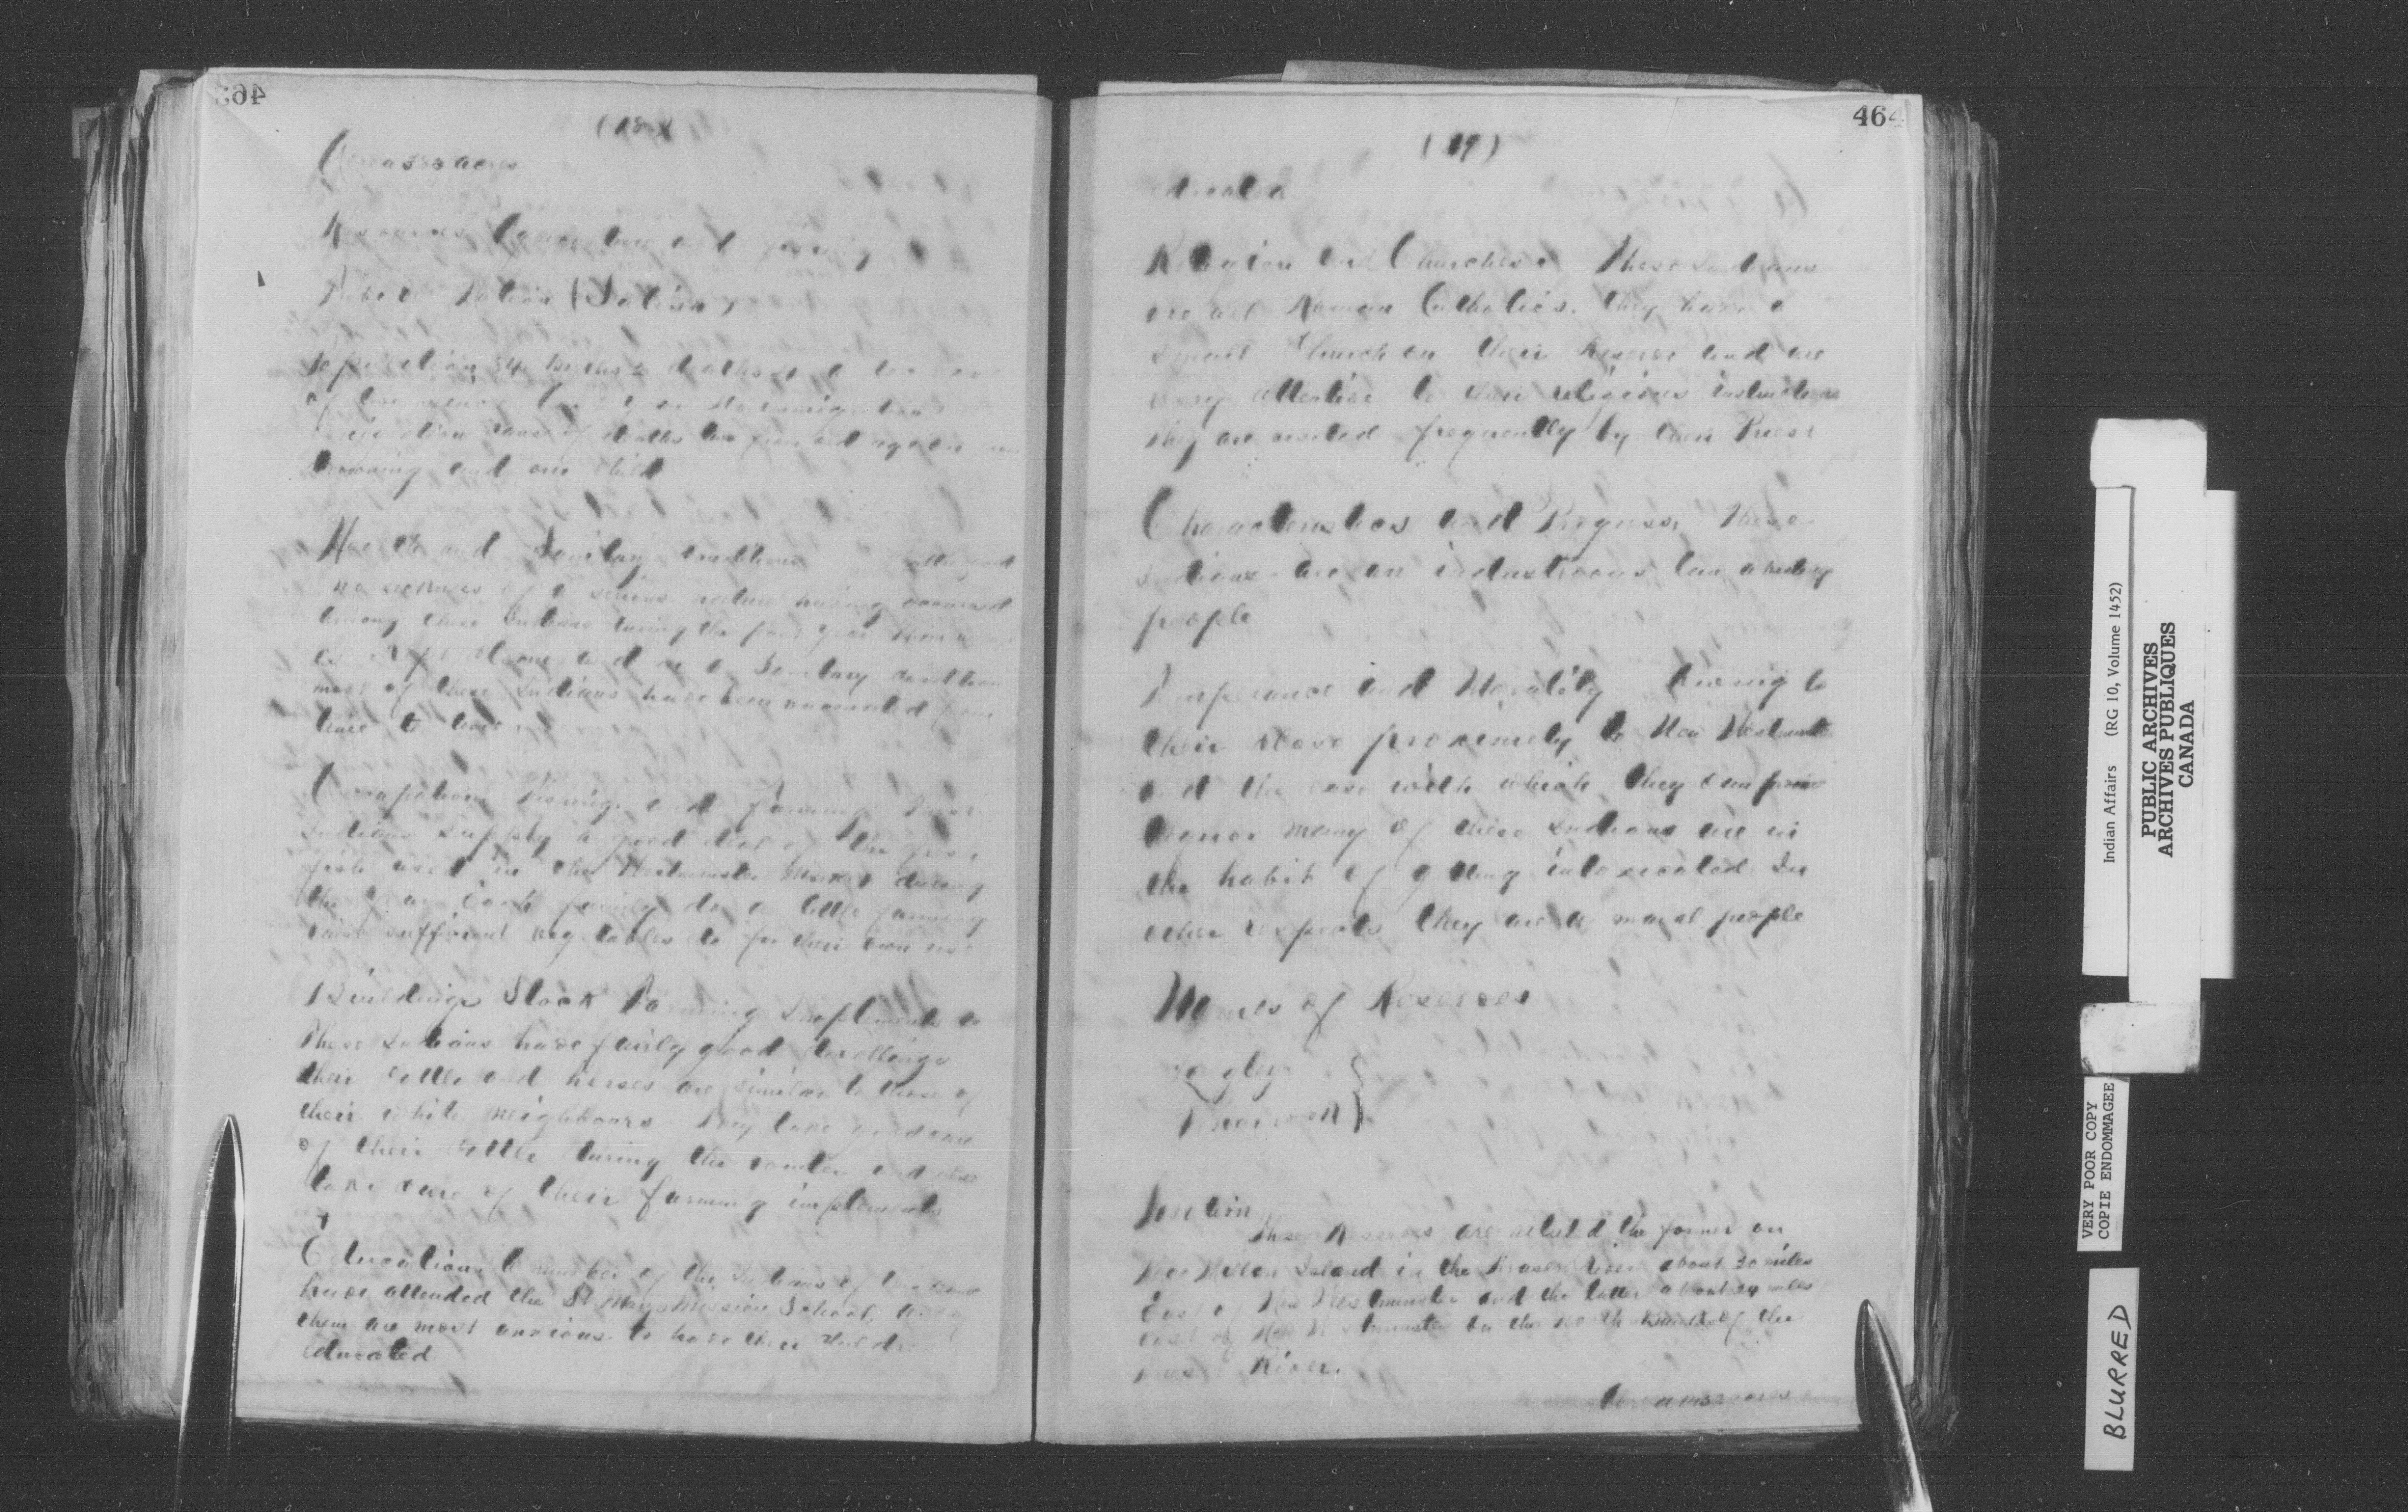 463
(18)
acres
Resources and
Tribe or Nation
Population 54
of deaths two from old age one
drowning and one child
Health and Sanitary conditions
no sickness of a serious nature having occurred
among these Indians during the past year
and in a Sanitary condition
most of these Indians have been vaccinated from
time to time.
Occupation Fishing and Farming
Indians supply a good deal of the
fish used in the Westminster Market during
the year Each family do a little farming
raise sufficient vegetables for their own use
Buildings Stock Farming Implements
These Indians have fairly good dwellings
their cattle and horses are similar to those of
their white neighbours They take good care
of their cattle during the winter and also
take care of their farming implements
Education A number of the Indians of
have attended the St Marys Mission School,
them are most anxious to have their children
educated
464
(19)
educated
Religion and Churches. These Indians
are all Roman Catholics. they have a
small Church on their Reserve and are
very attentive to their religious instructions
they are visited frequently by their Priest
Characteristics and Progress, These
Indians are an industrious law abiding
people
Temperance and Morality Owing to
their close proximity to New Westminster
and the ease with which they can procure
liquor many of these Indians are in
the habit of getting intoxicated. In
other respects they are a moral people
Names of Reserves
Langley
Whonnock
Location
These Reserves are situated the former on
MacMillan Island in the Fraser River about 20 miles
East of New Westminster and the latter about 24 miles
east of New Westminster on the north Bank of the
Fraser River.
Indian Affairs (RG 10, Volume 1452)
PUBLIC ARCHIVES
ARCHIVES PUBLIQUES
CANADA
VERY POOR COPY
COPIE ENDOMMAGEE
BLURRED